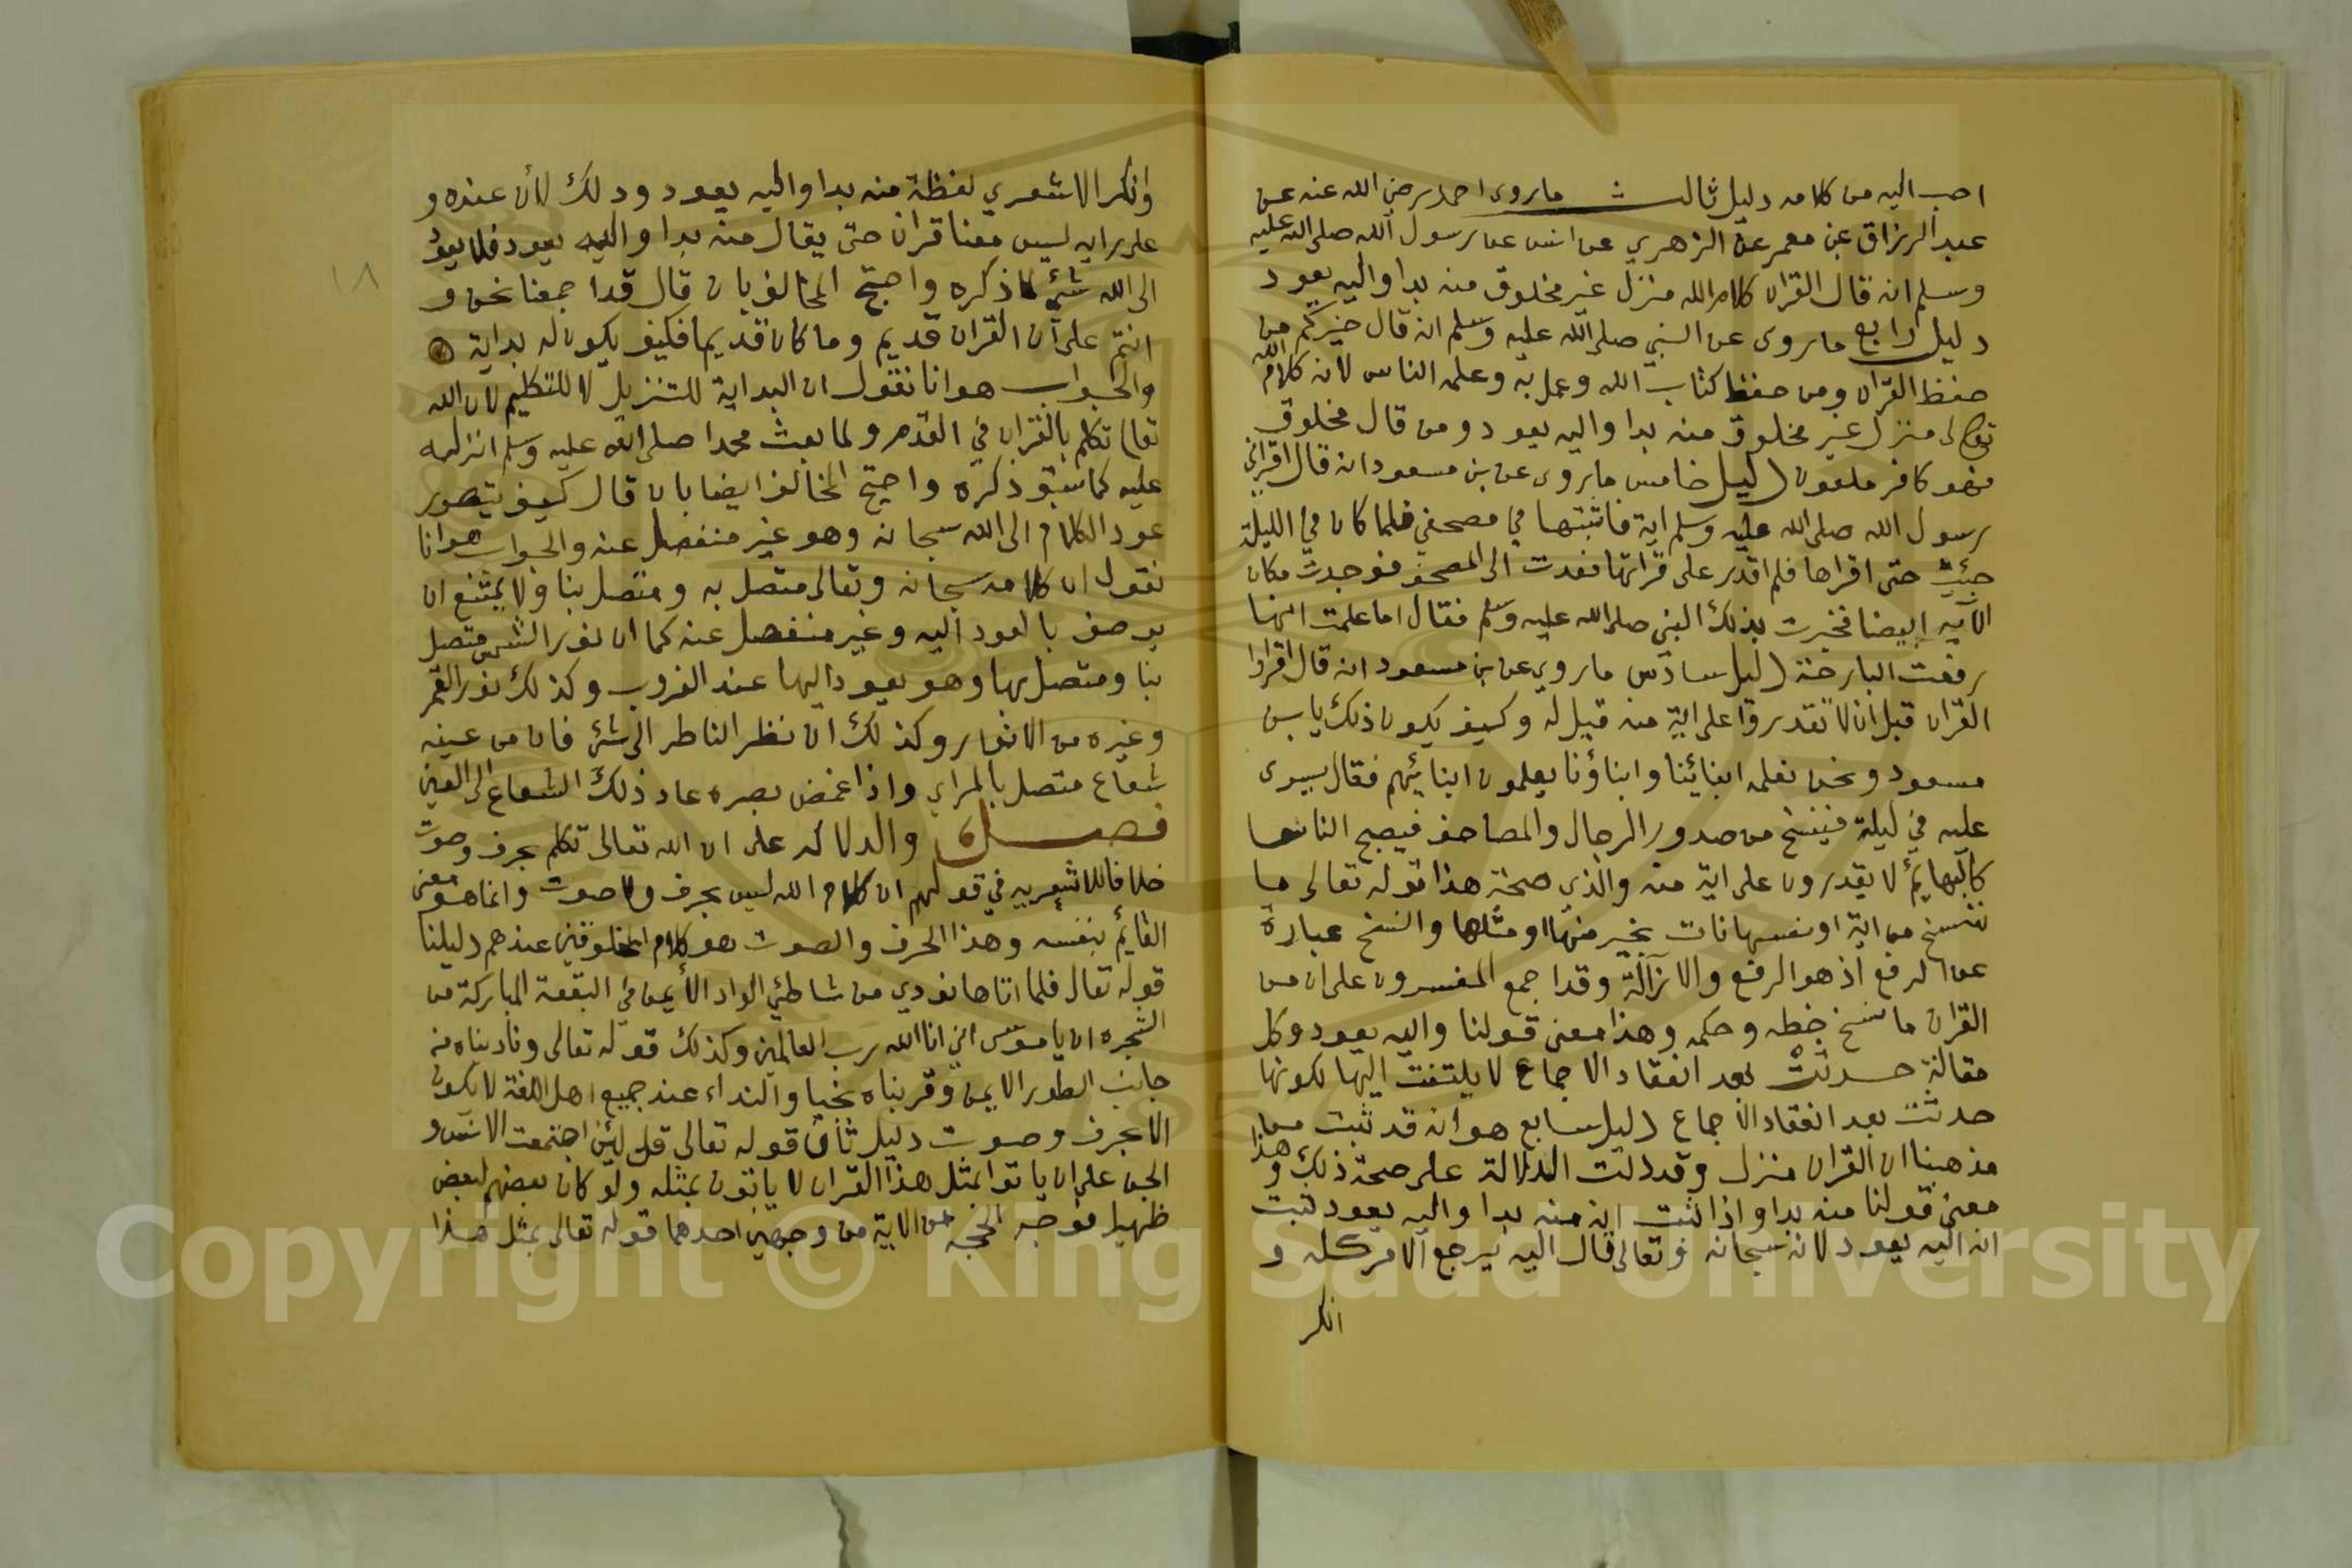 احب اليه من كلامه دليل ثالث ما روى احمد رضي الله عنه عن
عبد الرزاق عن معمر عن الزهري عن انس عن رسول الله صلى الله عليه
وسلم انه قال القران كلام الله منزل غير مخلوق منه بدا واليه يعود
دليل رابع ما روى عن النبي صلى الله عليه وسلم انه قال خيركم من
حفظ القران ومن حفظ كتاب الله وعمل به وعلمه الناس لانه كلام الله
تعالى منزل غير مخلوق منه بدا واليه يعود ومن قال مخلوق
فهو كافر ملعون دليل خامس ما روى عن بن مسعود انه قال اقراني
رسول الله صلى الله عليه وسلم اية فاثبتها في مصحفي فلما كان في الليلة
جئت حتى اقراها فلم اقدر على قراتها فعدت الى المصحف فوجدت مكان
الآيه ابيضا فخبرت بذلك النبي صلى الله عليه وسلم فقال اما علمت انها
رفعت البارحة دليل سادس ما روي عن بن مسعود انه قال اقراوا
القران قبل ان لا تقدروا على اية منه قيل له وكيف يكون ذلك يا بن
مسعود ونحن نعلمه ابنائينا وابناؤنا يعلمون ابنائيهم فقال يسرى
عليه في ليلة فينسخ من صدور الرجال والمصاحف فيصبح الناس
كالبهائم لا يقدرون على اية منه والذي صحة هذا قوله تعالى ما
ننسخ من اية او ننسها نات بخير منها او مثلها والنسخ عبارة
عن الرفع اذ هو الرفع والازالة وقد اجمع المفسرون على ان من
القران ما نسخ خطه وحكمه وهذا معنى قولنا واليه يعود وكل
مقالة حدثت بعد انعقاد الاجماع لا يلتفت اليها لكونها
حدثت بعد انعقاد الاجماع دليل سابع هو انه قد ثبت من
مذهبنا ان القران منزل وقد دلت الدلالة على صحة ذلك وهذا
معنى قولنا منه بدا واذا ثبت انه منه بدا واليه يعود ثبت
انه اليه يعود لانه سبحانه وتعالى قال اليه يرجع الامر كله و
انكر
وانكر الاشعري لفظة منه بدا واليه يعود وذلك لأن عنده و
على رايه ليس معنا قران حتى يقال منه بدا واليه يعود فلا يعود
الى الله شئ لما ذكره واحتج المخالف بان قال قد اجمعنا نحن و
انتم على ان القران قديم وما كان قديما فكيف يكون له بداية
والجواب هو انا نقول ان البداية للتنزيل لا للتكليم لان الله
تعالى تكلم بالقران في القدم ولما بعث محمدا صلى الله عليه وسلم انزله
عليه كما سبق ذكره واحتج المخالف ايضا بان قال كيف يتصور
عود الكلام الى الله سبحانه وهو غير منفصل عنه والجواب هو انا
نقول ان كلامه سبحانه وتعالى متصل به ومتصل بنا ولا يمتنع ان
يوصف بالعود اليه وغير منفصل عنه كما ان نور الشمس متصل
بنا ومتصل بها وهو يعود اليها عند الغروب وكذلك نور القمر
وغيره من الانوار وكذلك ان نظر الناظر الى شئ فان من عينه
شعاع متصل بالمراى واذا غمض بصره عاد ذلك الشعاع الى العين
فصل والدلالة على ان الله تعالى تكلم بحرف وصوت
خلافا للاشعريه في قولهم ان كلام الله ليس بحرف ولا صوت وانما هو معنى
القائم بنفسه وهذا الحرف والصوت هو كلام المخلوقين عندهم دليلنا
قوله تعال فلما اتاها نودي من شاطئ الواد الأيمن في البقعة المباركة من
الشجره ان يا موسى اني انا الله رب العالمين وكذلك قوله تعالى وناديناه من
جانب الطور الايمن وقربناه نجيا والنداء عند جميع اهل اللغة لا يكون
الا بحرف وصوت دليل ثان قوله تعالى قل لئن اجتمعت الانس و
الجن على ان ياتوا بمثل هذا القران لا ياتون بمثله ولو كان بعضهم لبعض
ظهيرا فوجه الحجه من الاية من وجهين احدهما قوله تعالى بمثل هذا
١٨
Copyright © King Saud University